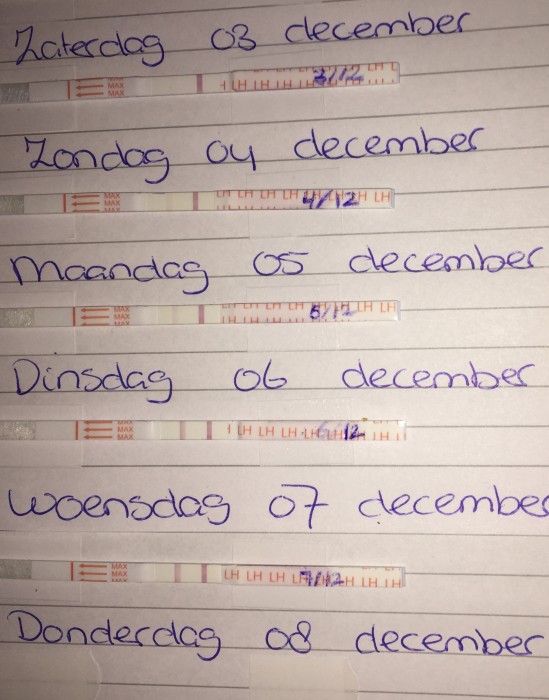 Zaterdag 03 december
MAX
MAX
LH LH LH LH 3/12 LH L
Zondag 04 december
MAX
MAX
MAX
LH LH LH LH 4/12 H LH
Maandag 05 december
MAX
MAX
MAX
5/12 LH LH
Dinsdag 06 december
MAX
MAX
MAX
LH LH LH LH 6/12 IH
Woensdag 07 december
MAX
MAX
MAX
LH LH LH L 7/12 H LH LH
Donderdag 08 december